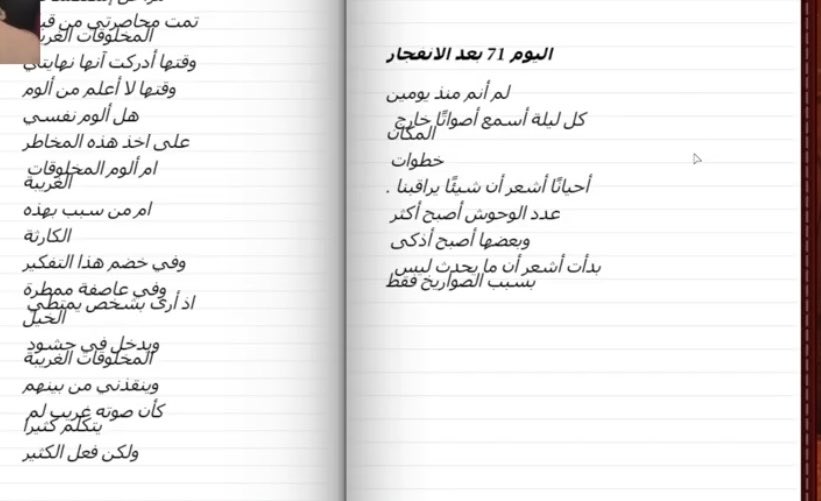 اليوم 71 بعد الانفجار
لم أنم منذ يومين
كل ليلة أسمع أصواتًا خارج
المكان
خطوات
أحيانًا أشعر أن شيئًا يراقبنا .
عدد الوحوش أصبح أكثر
وبعضها أصبح أذكى
بدأت أشعر أن ما يحدث ليس
بسبب الصواريخ فقط
تمت محاصرتي من
المخلوقات
وقتها أدركت آنها نهايتي
وقتها لا أعلم من ألوم
هل ألوم نفسي
على اخذ هذه المخاطر
ام ألوم المخلوقات
الغريبة
ام من سبب بهذه
الكارثة
وفي خضم هذا التفكير
وفي عاصفة ممطرة
اذ أرى بشخص يمتطي
الخيل
ويدخل في حشود
المخلوقات الغريبة
وينقذني من بينهم
كأن صوته غريب لم
يتكلم كثيرا
ولكن فعل الكثير